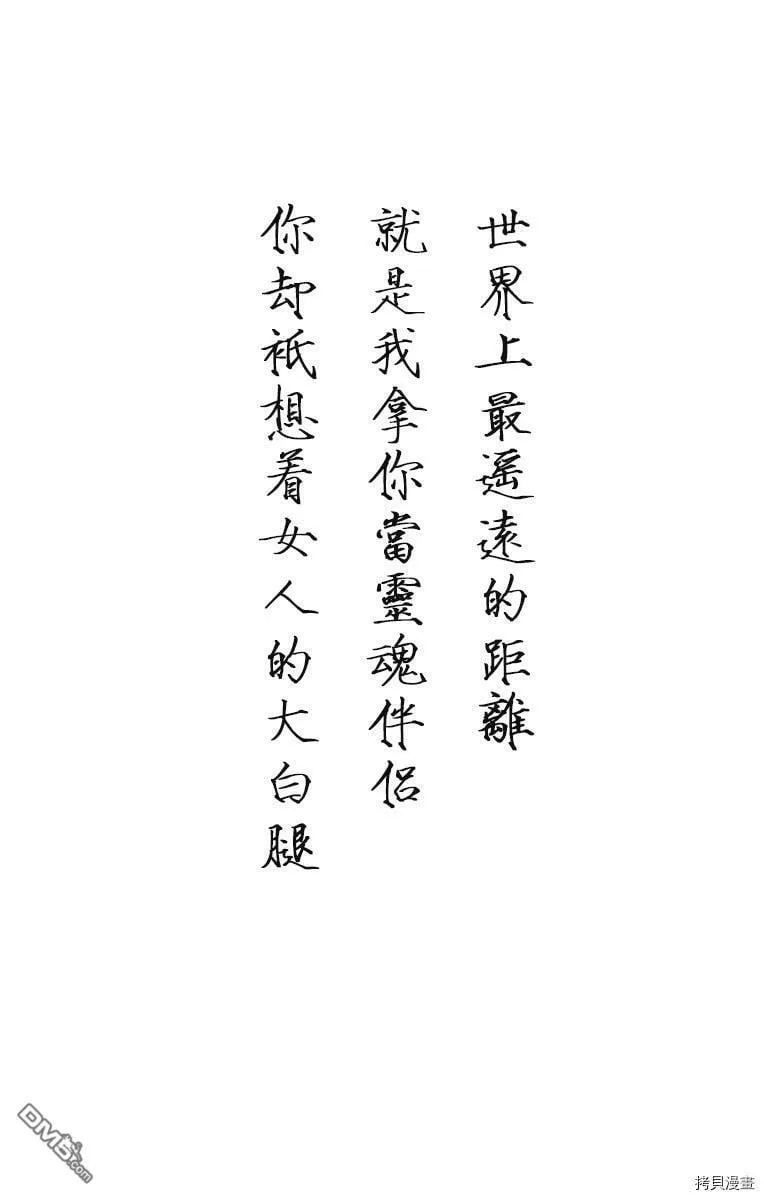 世界上最遥遠的距離
就是我拿你當靈魂伴侣
你却衹想着女人的大白腿
DM5.com
拷貝漫畫